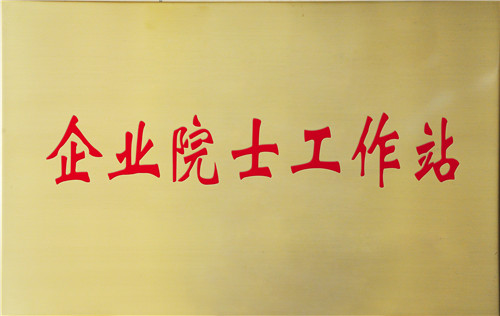 企业院士工作站